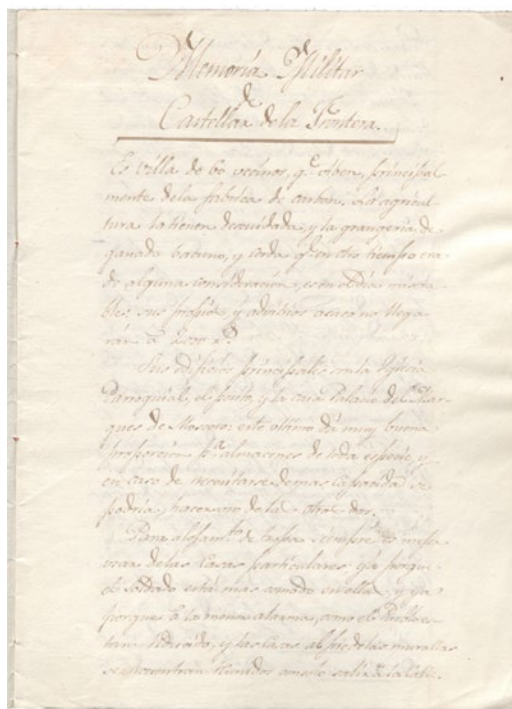 Memoria Militar
de
Castellar de la Frontera.
Es villa de 60 vecinos, q.e viven principal
mente de la fabrica de carbon. La agricul
tura la tienen descuidada, y la grangeria de
ganado bacuno, y cerda q.e en otro tiempo era
de alguna consideración, es en el dia misera
ble: sus propios y advitrios acaso no llega
rán à
Sus edificios principales son la Yglecia
Parroquial, el posito, y la casa Palacio del Mar
ques de Moscoso: este ultimo dá muy buena
proporcion p.a almacenes de toda especie, y
en caso de necesitarse de mas capacidad se
podria hacer uso de los otros dos.
Para alojam.to de tropa siempre es
usar de las casas particulares: ya porque
el soldado está mas comodo en ellas, y ya
porque à la menor alarma, como el Pueblo es
tan reducido, y las casas al pie de las murallas
se encuentran reunidos con solo salir à la calle.